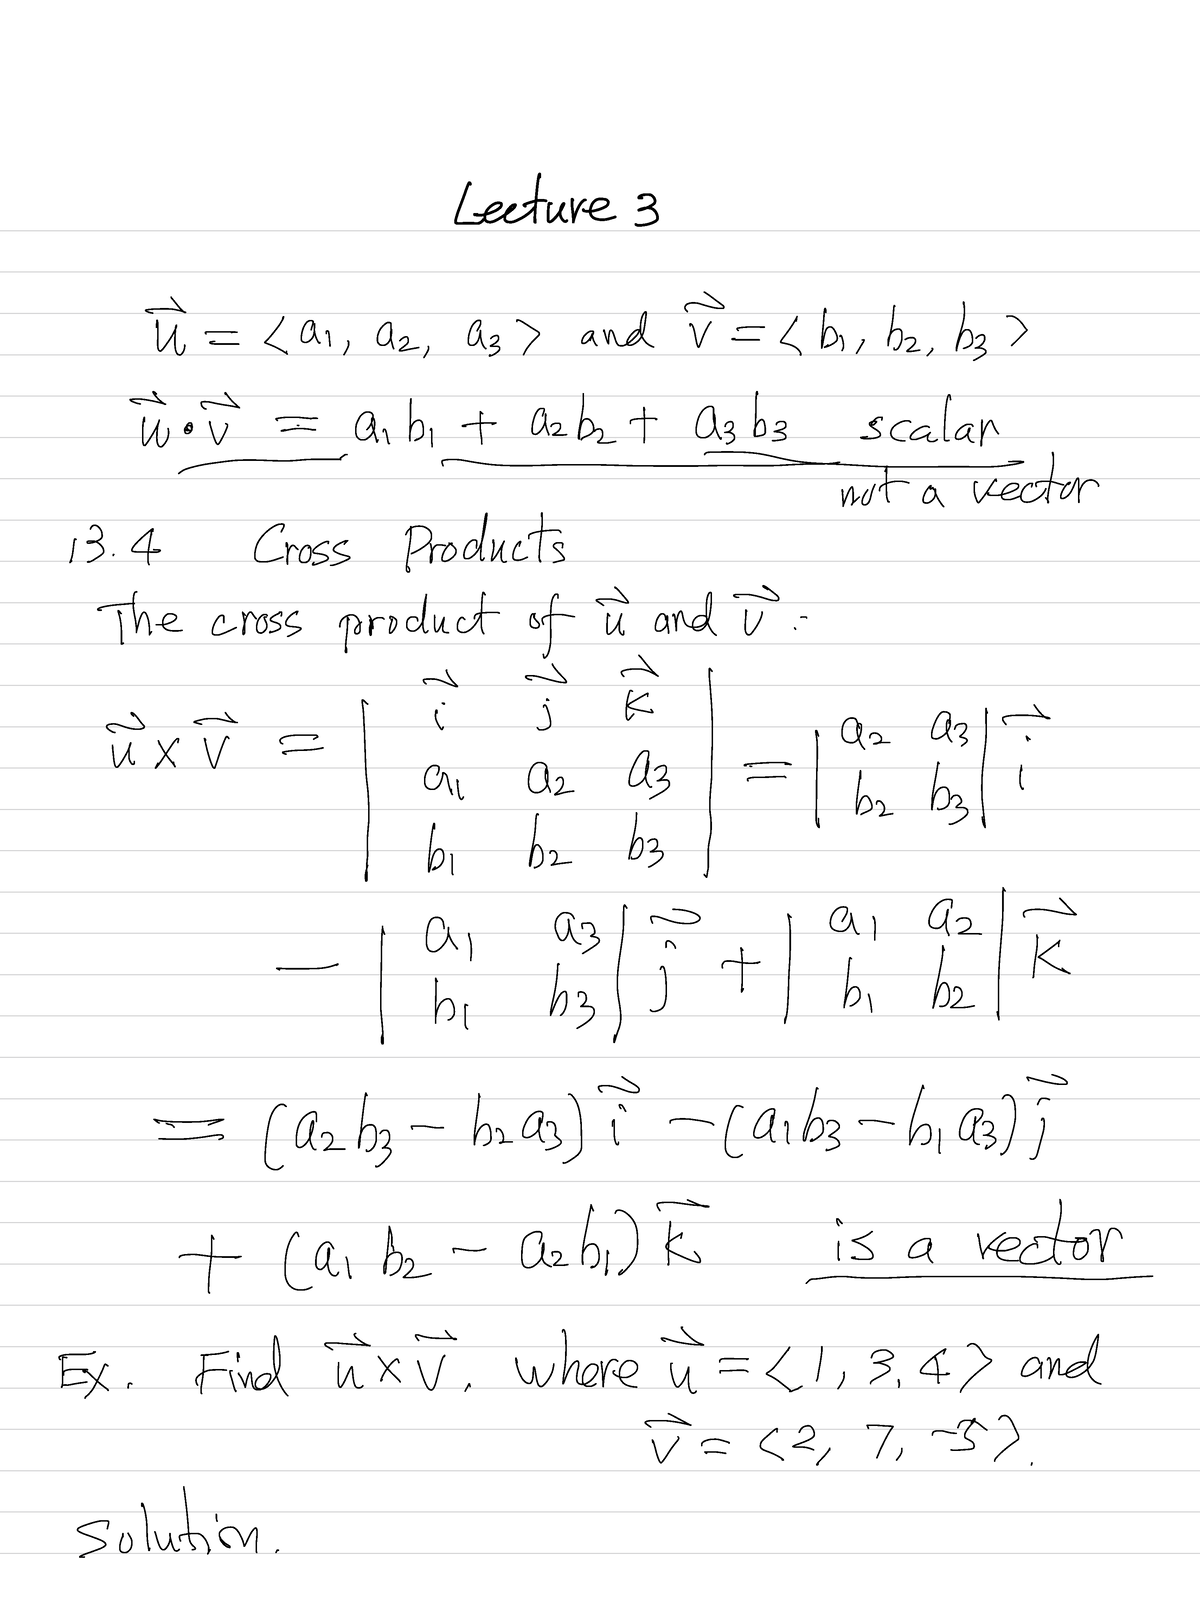 Lecture 3
u⃗ = <a₁, a₂, a₃> and v⃗ = <b₁, b₂, b₃>
u⃗ • v⃗ = a₁b₁ + a₂b₂ + a₃b₃ scalar
not a vector
13.4 Cross Products
The cross product of u⃗ and v⃗ :-
u⃗ × v⃗ = | i⃗ j⃗ k⃗ ; a₁ a₂ a₃ ; b₁ b₂ b₃ | = | a₂ a₃ ; b₂ b₃ | i⃗
− | a₁ a₃ ; b₁ b₃ | j⃗ + | a₁ a₂ ; b₁ b₂ | k⃗
= (a₂b₃ − b₂a₃) i⃗ − (a₁b₃ − b₁a₃) j⃗
+ (a₁b₂ − a₂b₁) k⃗ is a vector
Ex. Find u⃗ × v⃗, where u⃗ = <1, 3, 4> and
v⃗ = <2, 7, −5>.
Solution.